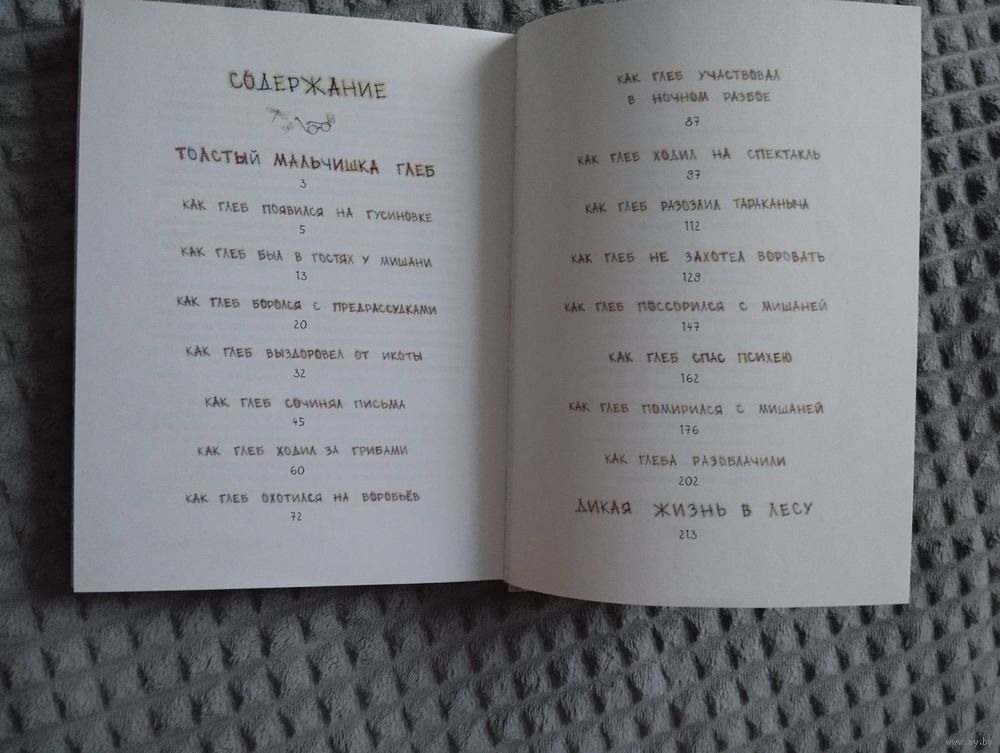 СОДЕРЖАНИЕ
ТОЛСТЫЙ МАЛЬЧИШКА ГЛЕБ
3
КАК ГЛЕБ ПОЯВИЛСЯ НА ГУСИНОВКЕ
5
КАК ГЛЕБ БЫЛ В ГОСТЯХ У МИШАНИ
13
КАК ГЛЕБ БОРОЛСЯ С ПРЕДРАССУДКАМИ
20
КАК ГЛЕБ ВЫЗДОРОВЕЛ ОТ ИКОТЫ
32
КАК ГЛЕБ СОЧИНЯЛ ПИСЬМА
45
КАК ГЛЕБ ХОДИЛ ЗА ГРИБАМИ
60
КАК ГЛЕБ ОХОТИЛСЯ НА ВОРОБЬЁВ
72
КАК ГЛЕБ УЧАСТВОВАЛ
В НОЧНОМ РАЗБОЕ
87
КАК ГЛЕБ ХОДИЛ НА СПЕКТАКЛЬ
97
КАК ГЛЕБ РАЗОЗЛИЛ ТАРАКАНЫЧА
112
КАК ГЛЕБ НЕ ЗАХОТЕЛ ВОРОВАТЬ
129
КАК ГЛЕБ ПОССОРИЛСЯ С МИШАНЕЙ
147
КАК ГЛЕБ СПАС ПСИХЕЮ
162
КАК ГЛЕБ ПОМИРИЛСЯ С МИШАНЕЙ
176
КАК ГЛЕБА РАЗОБЛАЧИЛИ
202
ДИКАЯ ЖИЗНЬ В ЛЕСУ
213
www.ay.by